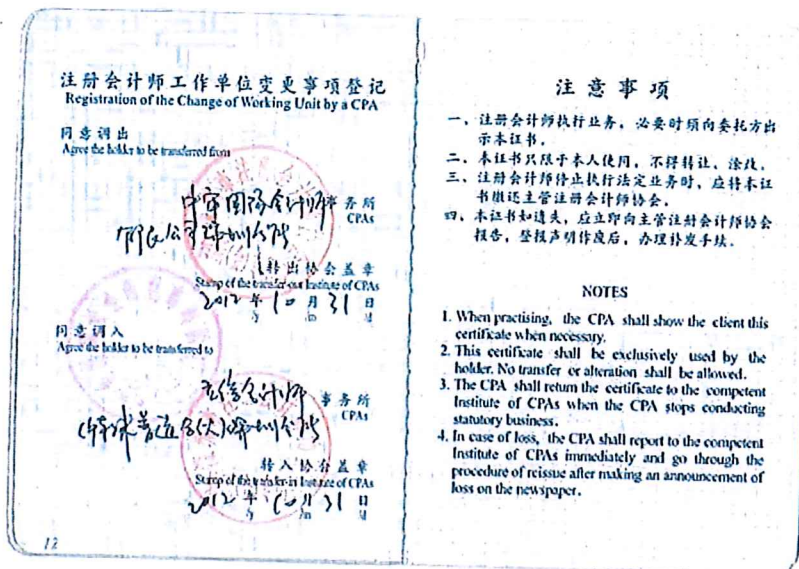 注册会计师工作单位变更事项登记
Registration of the Change of Working Unit by a CPA
同意调出
Agree the holder to be transferred from
中审国际会计师事务所
CPAs
有限公司深圳分所
转出协会盖章
Stamp of the transfer-out Institute of CPAs
2012年10月31日
/y /m /d
同意调入
Agree the holder to be transferred to
会计师事务所
CPAs
(特殊普通合伙)深圳分所
转入协会盖章
Stamp of the transfer-in Institute of CPAs
2012年10月31日
/y /m /d
12
注意事项
一、注册会计师执行业务，必要时须向委托方出
示本证书。
二、本证书只限于本人使用，不得转让、涂改。
三、注册会计师停止执行法定业务时，应将本证
书缴还主管注册会计师协会。
四、本证书如遗失，应立即向主管注册会计师协会
报告，登报声明作废后，办理补发手续。
NOTES
1. When practising, the CPA shall show the client this
certificate when necessary.
2. This certificate shall be exclusively used by the
holder. No transfer or alteration shall be allowed.
3. The CPA shall return the certificate to the competent
Institute of CPAs when the CPA stops conducting
statutory business.
4. In case of loss, the CPA shall report to the competent
Institute of CPAs immediately and go through the
procedure of reissue after making an announcement of
loss on the newspaper.